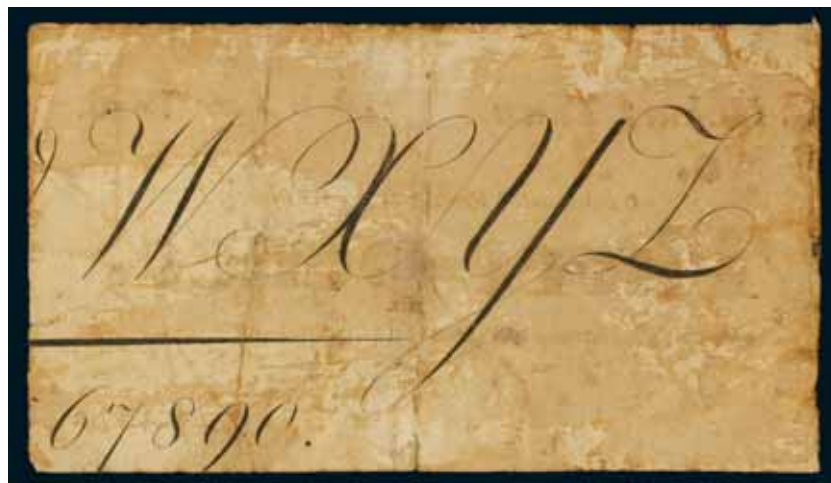 W X Y Z
67890.